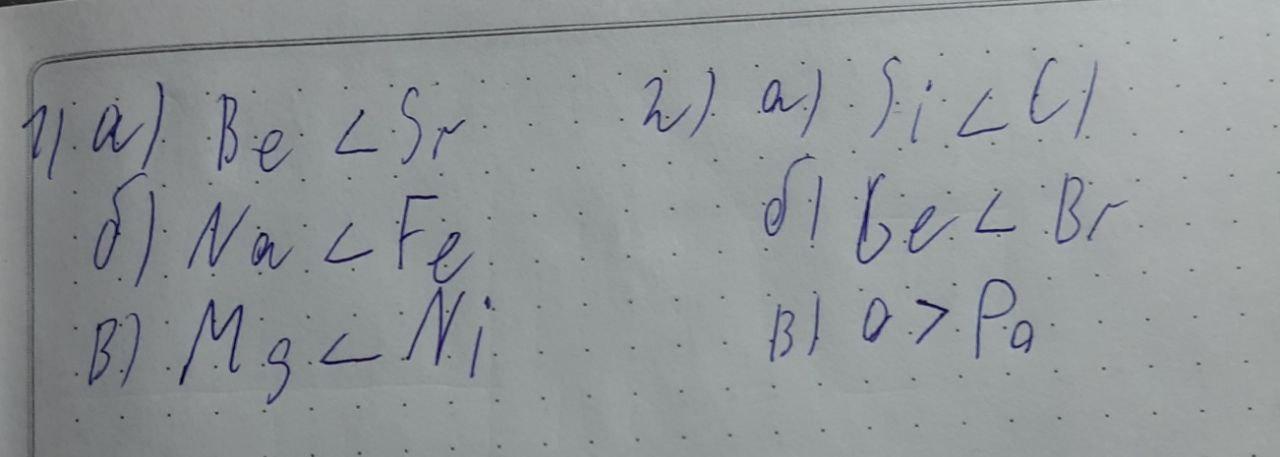 1) а) Be < Sr
б) Na < Fe
в) Mg < Ni
2) а) Si < Cl
б) Ge < Br
в) O > Po